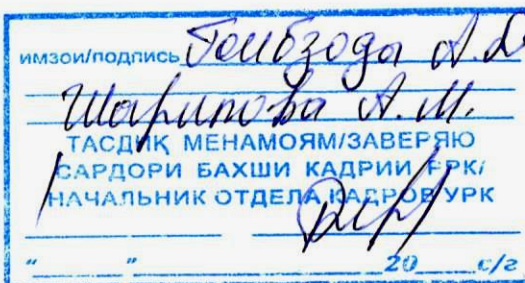 имзои/подпись Гоибзода А.Д.
Шарипова А.М.
ТАСДИҚ МЕНАМОЯМ/ЗАВЕРЯЮ
САРДОРИ БАХШИ КАДРИИ РРК/
НАЧАЛЬНИК ОТДЕЛА КАДРОВ УРК
"____"____________20____с/г